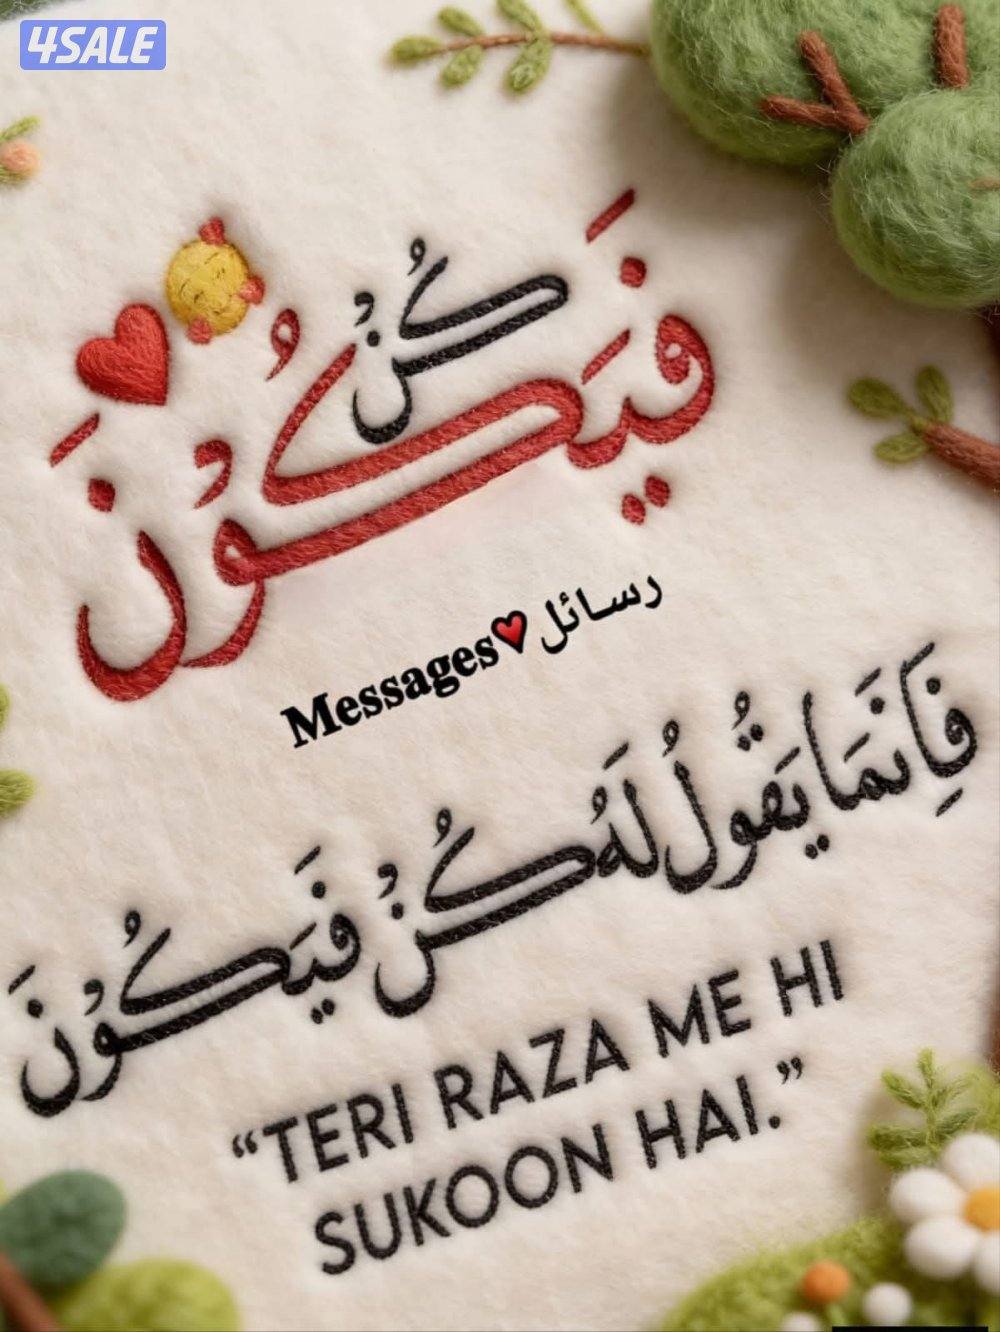 4SALE
كُنْ
فَيَكُوْنَ
رسائل♥Messages
فَاِنَّمَا يَقُوْلُ لَهُ كُنْ فَيَكُوْنَ
“TERI RAZA ME HI
SUKOON HAI.”